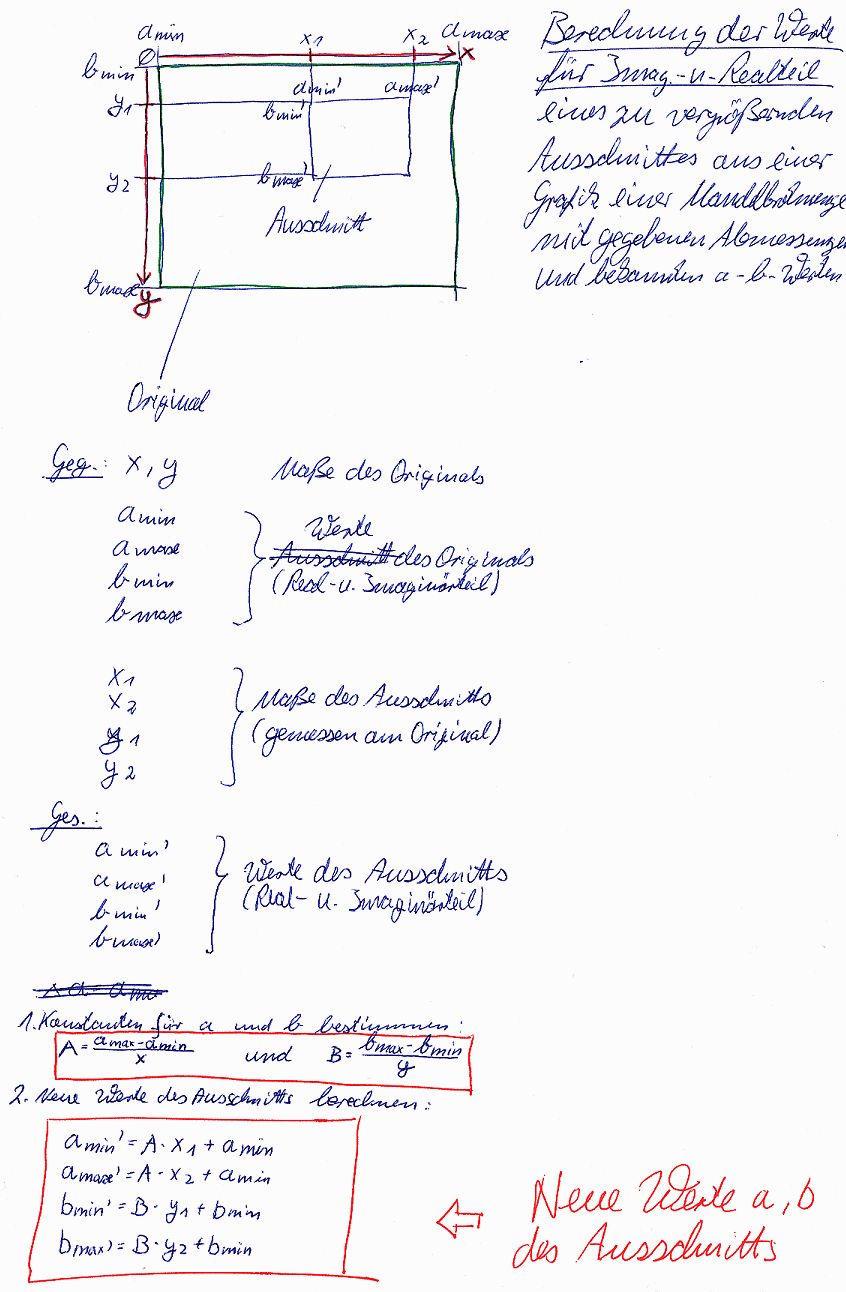 amin x1 x2 amax
0 x
bmin
amin' amax'
y1 bmin'
y2 bmax'
Ausschnitt
bmax
y
Original
Berechnung der Werte
für Imag.-u-Realteil
eines zu vergrößernden
Ausschnittes aus einer
Grafik einer Mandelbrotmenge
mit gegebenen Abmessungen
und bekannten a-b-Werten
Geg.: x, y Maße des Originals
amin
amax
bmin
bmax
Werte
Ausschnitt des Originals
(Real-u. Imaginärteil)
x1
x2
y1
y2
Maße des Ausschnitts
(gemessen am Original)
Ges.:
amin'
amax'
bmin'
bmax'
Werte des Ausschnitts
(Real- u. Imaginärteil)
1. Konstanten für a und b bestimmen:
A = amax-amin / x und B = bmax-bmin / y
2. Neue Werte des Ausschnitts berechnen:
amin' = A · x1 + amin
amax' = A · x2 + amin
bmin' = B · y1 + bmin
bmax' = B · y2 + bmin
Neue Werte a, b
des Ausschnitts